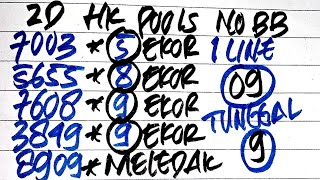 2D HK POOLS NO BB
7003 * 5 EKOR 1 LINE
5655 * 8 EKOR 09
7608 * 9 EKOR TUNGGAL
3849 * 9 EKOR 9
8909 * MELEDAK